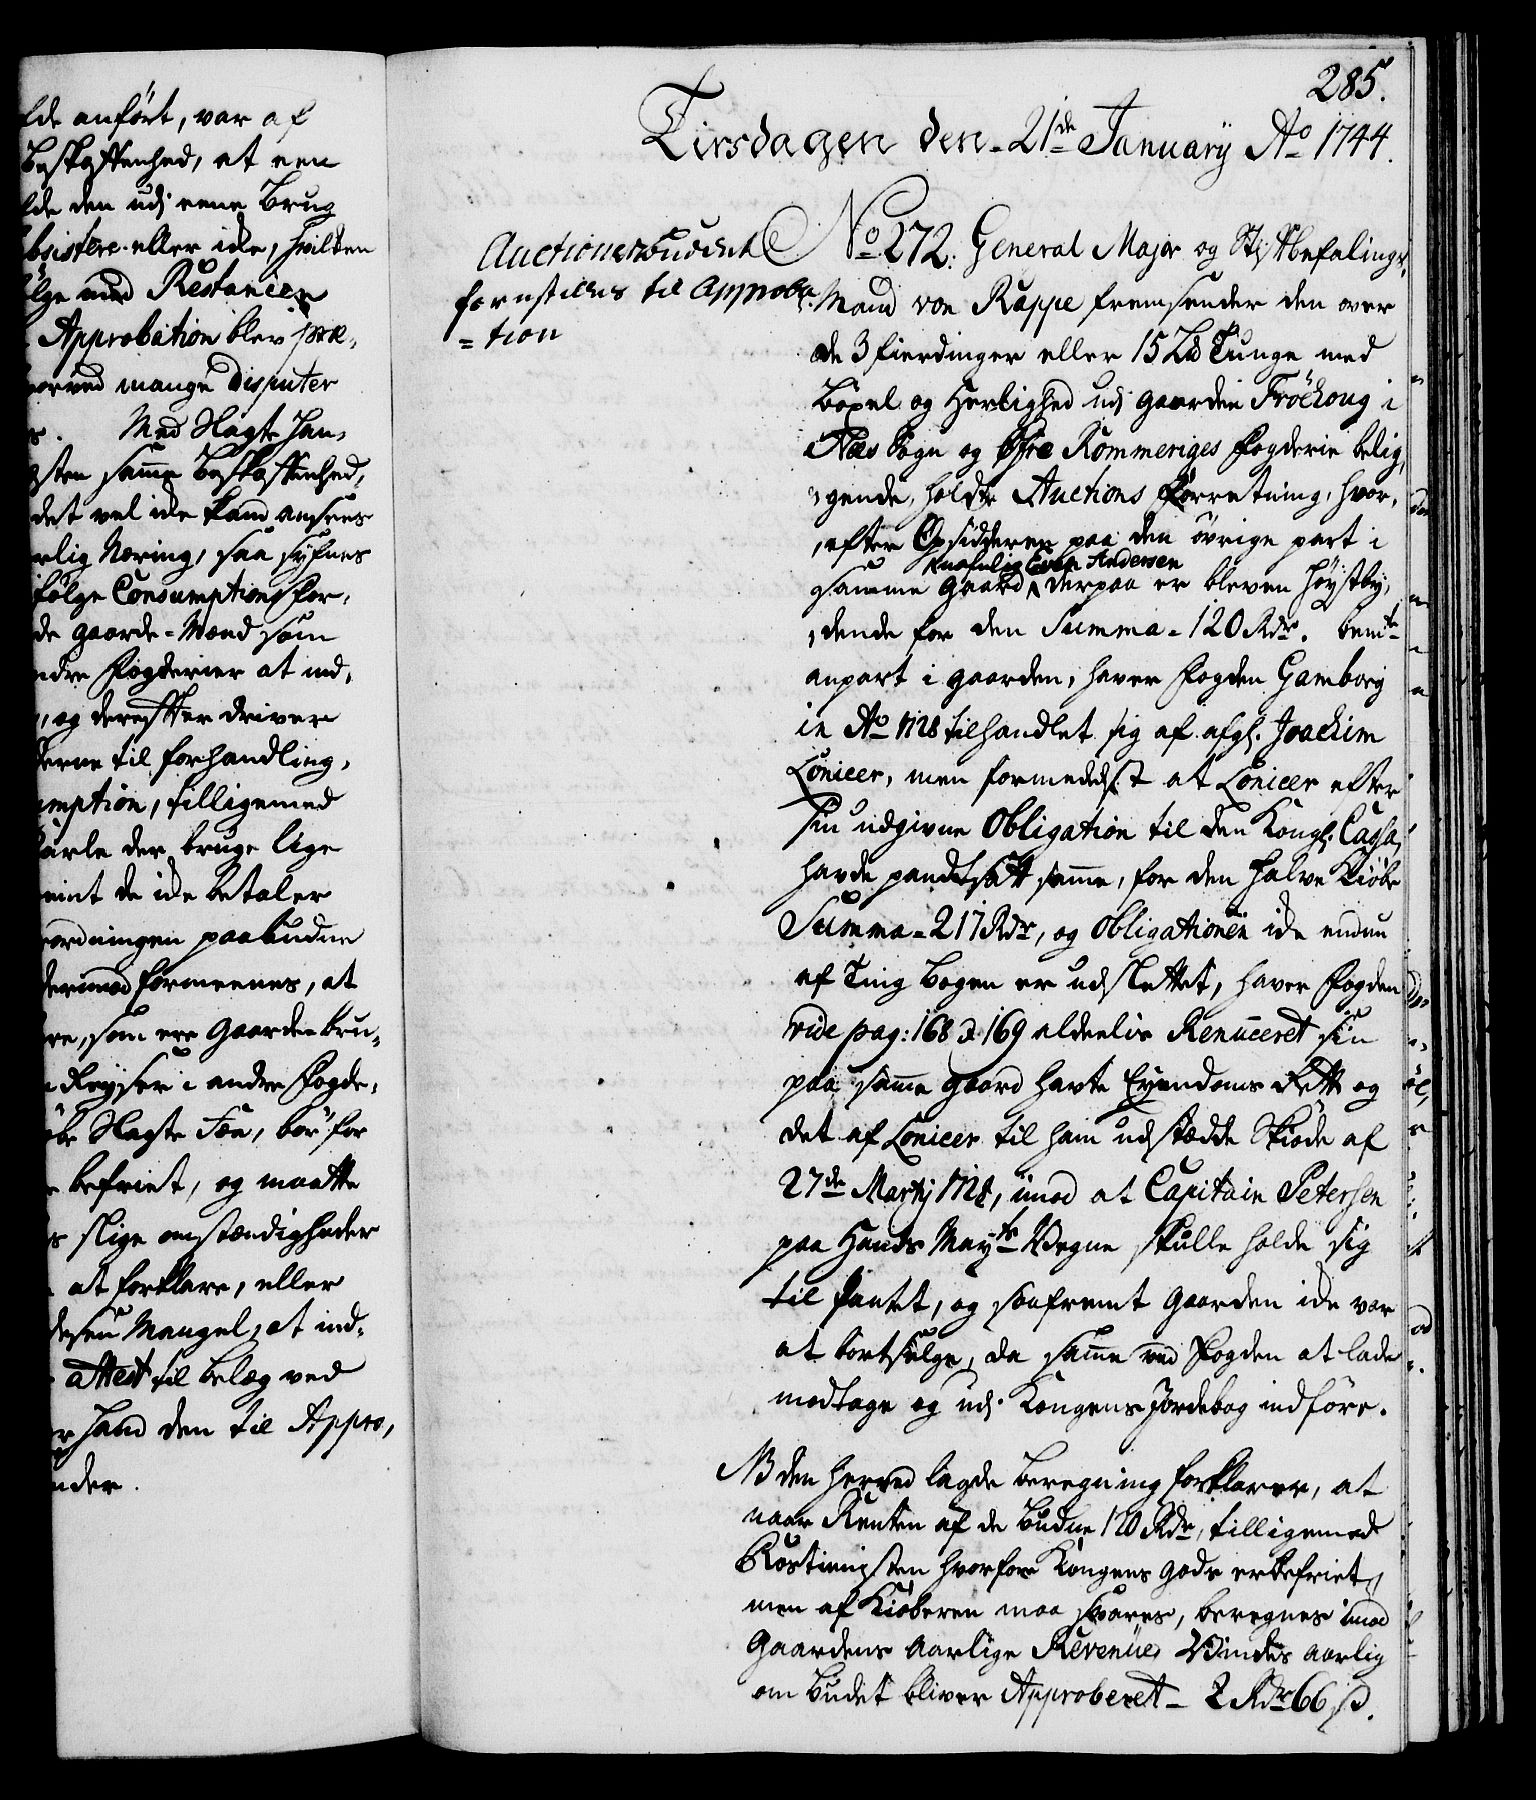 lde anført, var af
Beskaffenhed, at een
lde den udj eene Brug
bsistere eller icke, hvilken
ølge med Restancen
Approbation blev præ,
orved mange Disputer
s. Med Slagte Han,
gsten samme Beskaffenhed,
det vel icke kand ansees
rlig Næring, saa synes
følge Consumptions For,
de Gaarde-Mænd som
ndre Fogderier at ind,
, og derefter driver
derne til forhandling,
umption, tilligemed
Karle der bruge lige
eint de icke betaler
ordningen paabudne
derimod formeenes, at
re, som ere Gaardebru,
Reyser i andre Fogde,
øbe Slagte Fæe, bør for
befriet, og maatte
s slige omstændigheder
at forklare, eller
desen Mangel, at ind,
attest til belæg ved
r hand den til Appro,
nder.
285.
Tirsdagen den 21de January Ao 1744.
Auctionsbudet
forestilles til Approba
=tion
No 272. General Major og Stiftbefalings,
Mand von Rappe fremsender den over
de 3 fierdinger eller 15 Lb Tunge med
Bøxel og Herlighed udj gaarden Fröchoug i
Næs Sogn og Øfre Rommeriges Fogderie belig,
,gende, holdte Auctions Forretning, hvor,
,efter Opsidderen paa den øvrige part i
Nafnlig Even Andersen
samme Gaard derpaa er bleven Høystby,
,dende for den Summa 120 Rdr. bemte
anpart i gaarden, haver Fogden Gamborg
in Ao 1728 tilhandlet sig af afgl. Joachim
Lonicer, men formedelst at Lonicer efter
sin udgivne Obligation til den Kongl. Cassa,
havde pandtsatt samme, for den halve Kiøbe
Summa 217 Rdr, og Obligationen icke endnu
af Ting bogen er udslettet, haver Fogden
vide pag: 168 & 169 aldeelis Renunceret sin
paa samme gaard havte Eyendoms Rett og
det af Lonicer til ham udstædde Skiøde af
27de Martij 1728, imod at Capitain Petersen
paa Hands Mayts Vegne skulle holde sig
til Pantet, og saafremt Gaarden icke var
at bortselge, da samme ved Fogden at lade
modtage og udj Kongens Jordebog indføre.
NB den herved lagde beregning forklarer, at
naar Renten af de budne 120 Rdr, tilligemed
Rostienisten hvorfore Kongens gods er befriet,
men af Kiøberen maa svares, beregnes imod
Gaardens aarlige Revenüe, Vindes aarlig
om budet bliver Approberet 2 Rdr 66 s.